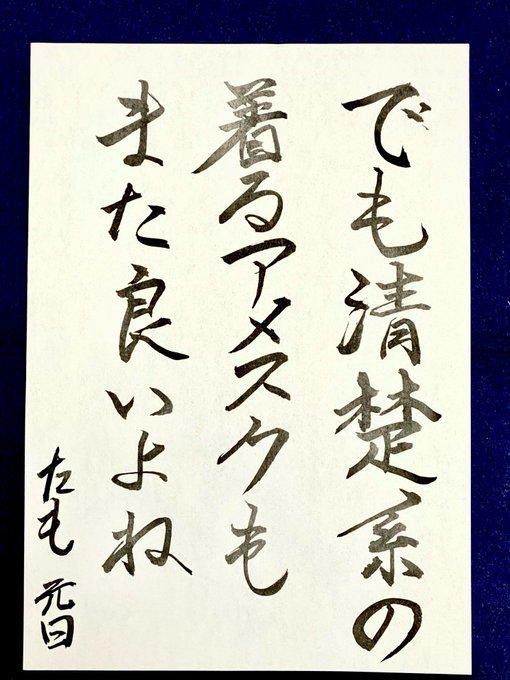 でも清楚系の
着るアメスクも
また良いよね
たも 元日